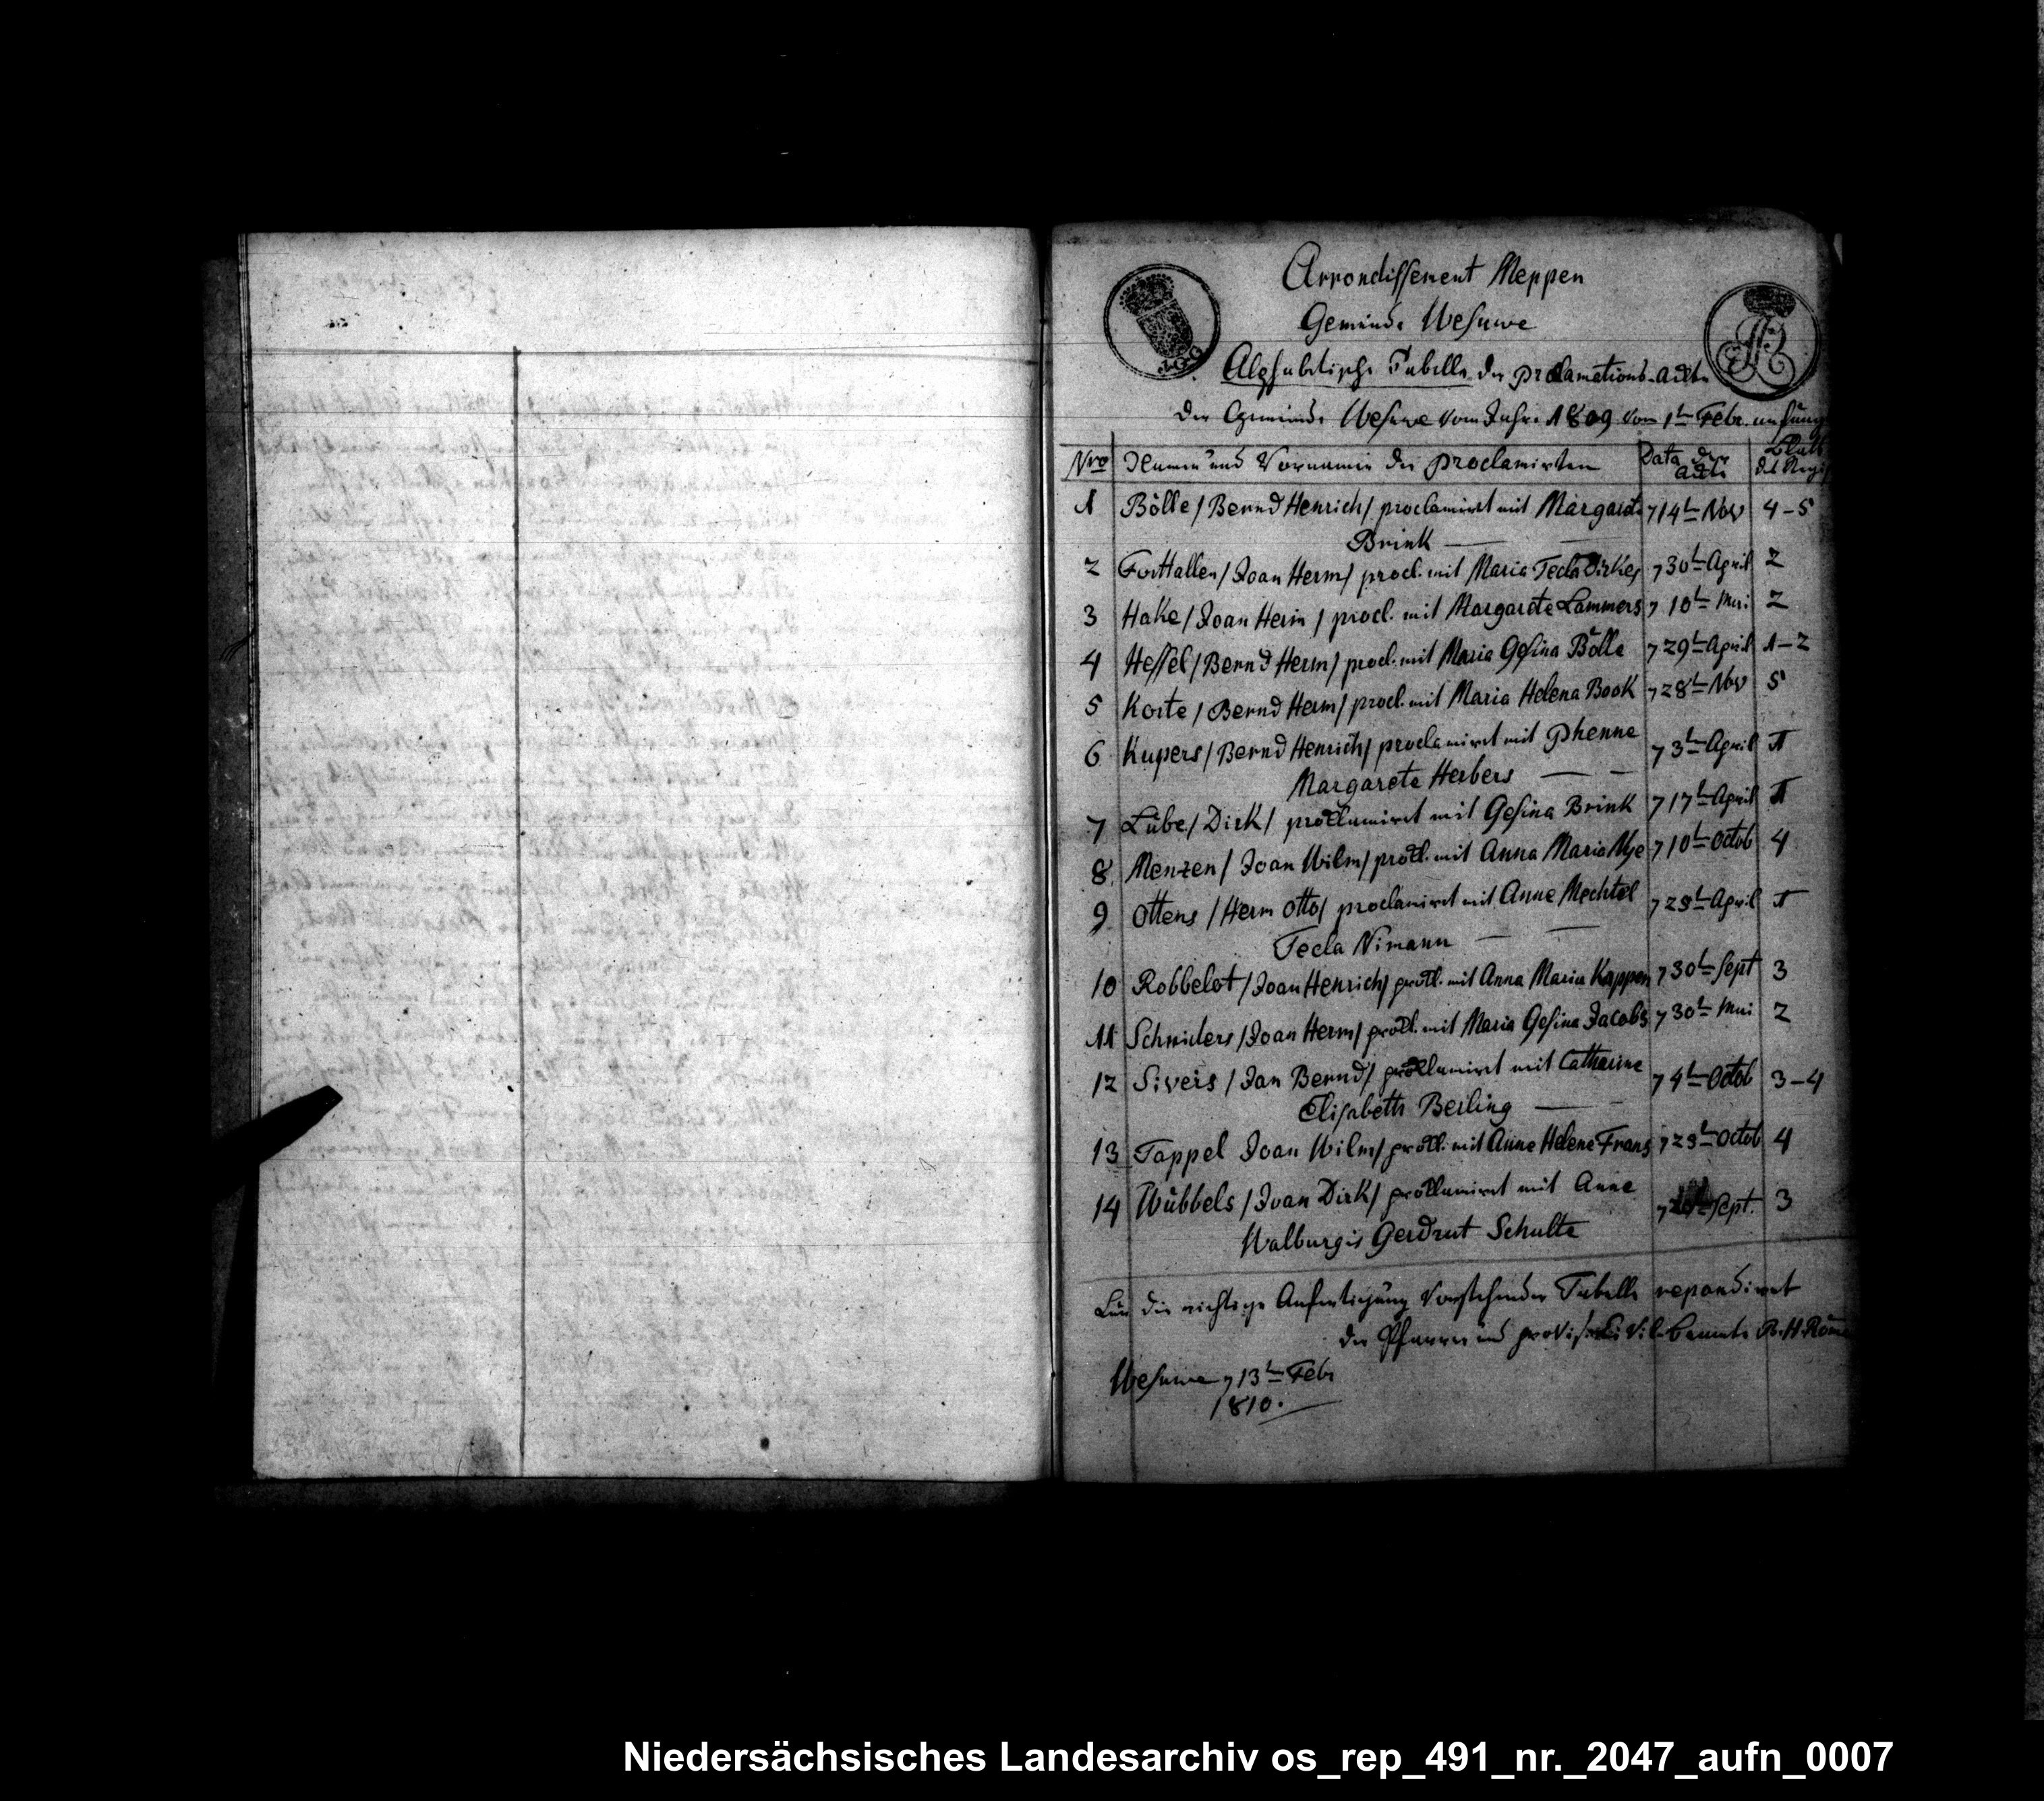 Arrondissement Meppen
Gemeinde Wesuwe
Alphabetische Tabelle der Proclamations-Acte
der Gemeinde Wesuwe vom Jahre 1809 vom 1t Febr.
Nro Namen und Vornamen der Proclamirten Data der Acte Blatt des Regis
1 Bölle / Bernd Henrich / proclamiret mit Margarete 14t Nov 4-5
Brink
2 / Joan Herm / procl. mit Maria Tecla Dirkes 30t April 2
3 Hake / Joan Herm / procl. mit Margarete Lammers 10t Mai 2
4 Hessel / Bernd Herm / procl. mit Maria Gesina Bölle 29t April 1-2
5 Korte / Bernd Herm / procl. mit Maria Helena Book 28t Nov 5
6 Kupers / Bernd Henrich / proclamiret mit Phenne 3t April 1
Margarete Herbers
7 Lübe / Dirk / proclamiret mit Gesina Brink 17t April 1
8 Menzen / Joan Wilm / procl. mit Anna Maria 10t Octob 4
9 Ottens / Herm Otto / proclamiret mit Anne Mechtel April 1
Tecla Nimann
10 Robbelot / Joan Henrich / procl. mit Anna Maria Kappen 30t Sept 3
11 Schniders / Joan Herm / procl. mit Maria Gesina Jacobs 30t Mai 2
12 Sivers / Jan Bernd / proclamiret mit Catharine 4t Octob 3-4
Elisabeth Berling
13 Tappel Joan Wilm / procl. mit Anne Helene Frans Octob 4
14 Wübbels / Joan Dirk / proclamiret mit Anne Sept. 3
Walburgis Gerdrut Schulte
die richtige Anfertigung vorstehender Tabelle
der Pfarrer und provis. Civil-Beamte
Wesuwe 13t Febr
1810.
Niedersächsisches Landesarchiv os_rep_491_nr._2047_aufn_0007